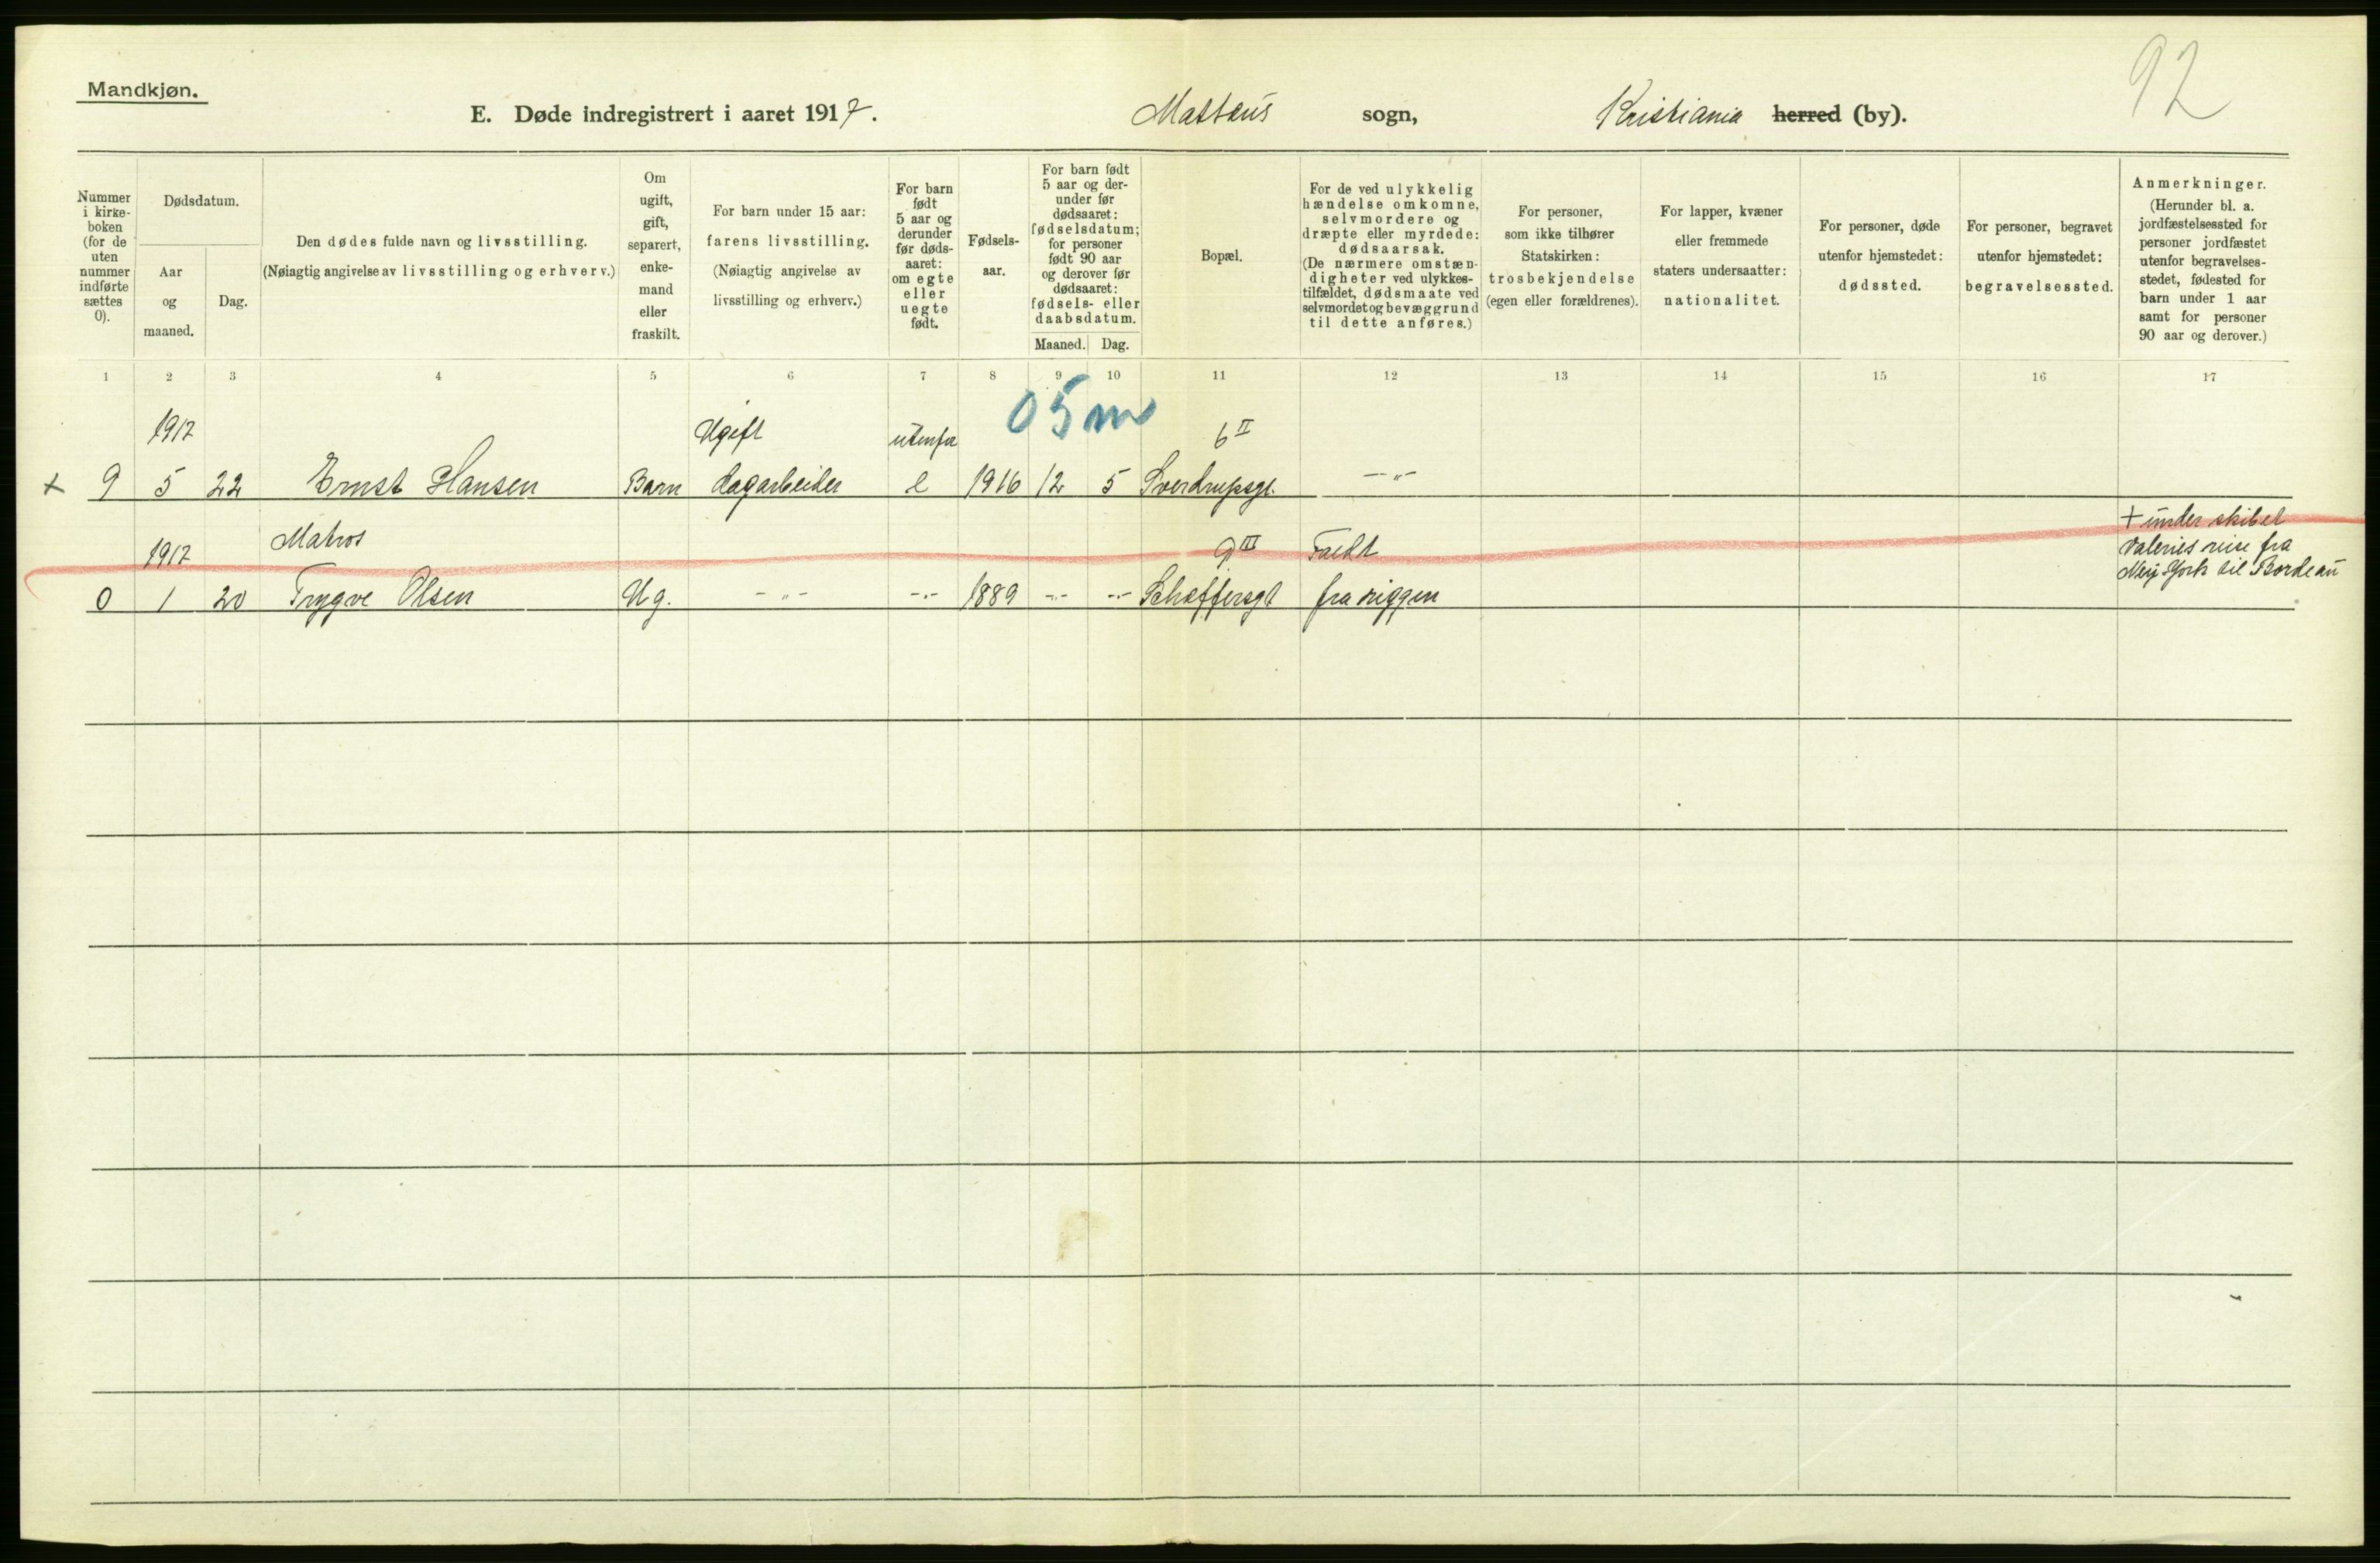 92
Mandkjøn.
E. Døde indregistrert i aaret 1917. Mattæus sogn, Kristiania herred (by).
Nummer i kirke-boken (for de uten nummer indførte sættes 0).
Dødsdatum.
Aar og maaned.
Dag.
Den dødes fulde navn og livsstilling.
(Nøiagtig angivelse av livsstilling og erhverv.)
Om ugift, gift, separert, enke-mand eller fraskilt.
For barn under 15 aar: farens livsstilling.
(Nøiagtig angivelse av livsstilling og erhverv.)
For barn født 5 aar og derunder før døds-aaret: om egte eller uegte født.
Fødsels-aar.
For barn født 5 aar og der-under før dødsaaret: fødselsdatum; for personer født 90 aar og derover før dødsaaret: fødsels- eller daabsdatum.
Maaned. Dag.
Bopæl.
For de ved ulykkelig hændelse omkomne, selvmordere og dræpte eller myrdede: dødsaarsak.
(De nærmere omstæn-digheter ved ulykkes-tilfældet, dødsmaate ved selvmordet og bevæggrund til dette anføres.)
For personer, som ikke tilhører Statskirken: trosbekjendelse (egen eller forældrenes).
For lapper, kvæner eller fremmede staters undersaatter: nationalitet.
For personer, døde utenfor hjemstedet: dødssted.
For personer, begravet utenfor hjemstedet: begravelsessted.
Anmerkninger.
(Herunder bl. a. jordfæstelsessted for personer jordfæstet utenfor begravelses-stedet, fødested for barn under 1 aar samt for personer 90 aar og derover.)
1 2 3 4 5 6 7 8 9 10 11 12 13 14 15 16 17
05 m
1917 Ugift utenfor 6 II
+ 9 5 22 Ernst Hansen Barn dagarbeider e 1916 12 5 Sverdrupsgt. -"-
1917 Matros 9 III Faldt + under skibet
Valeries reise fra
New York til Bordeau
0 1 20 Trygve Olsen Ug. -"- -"- 1889 -"- -"- Schæffersgt fra riggen